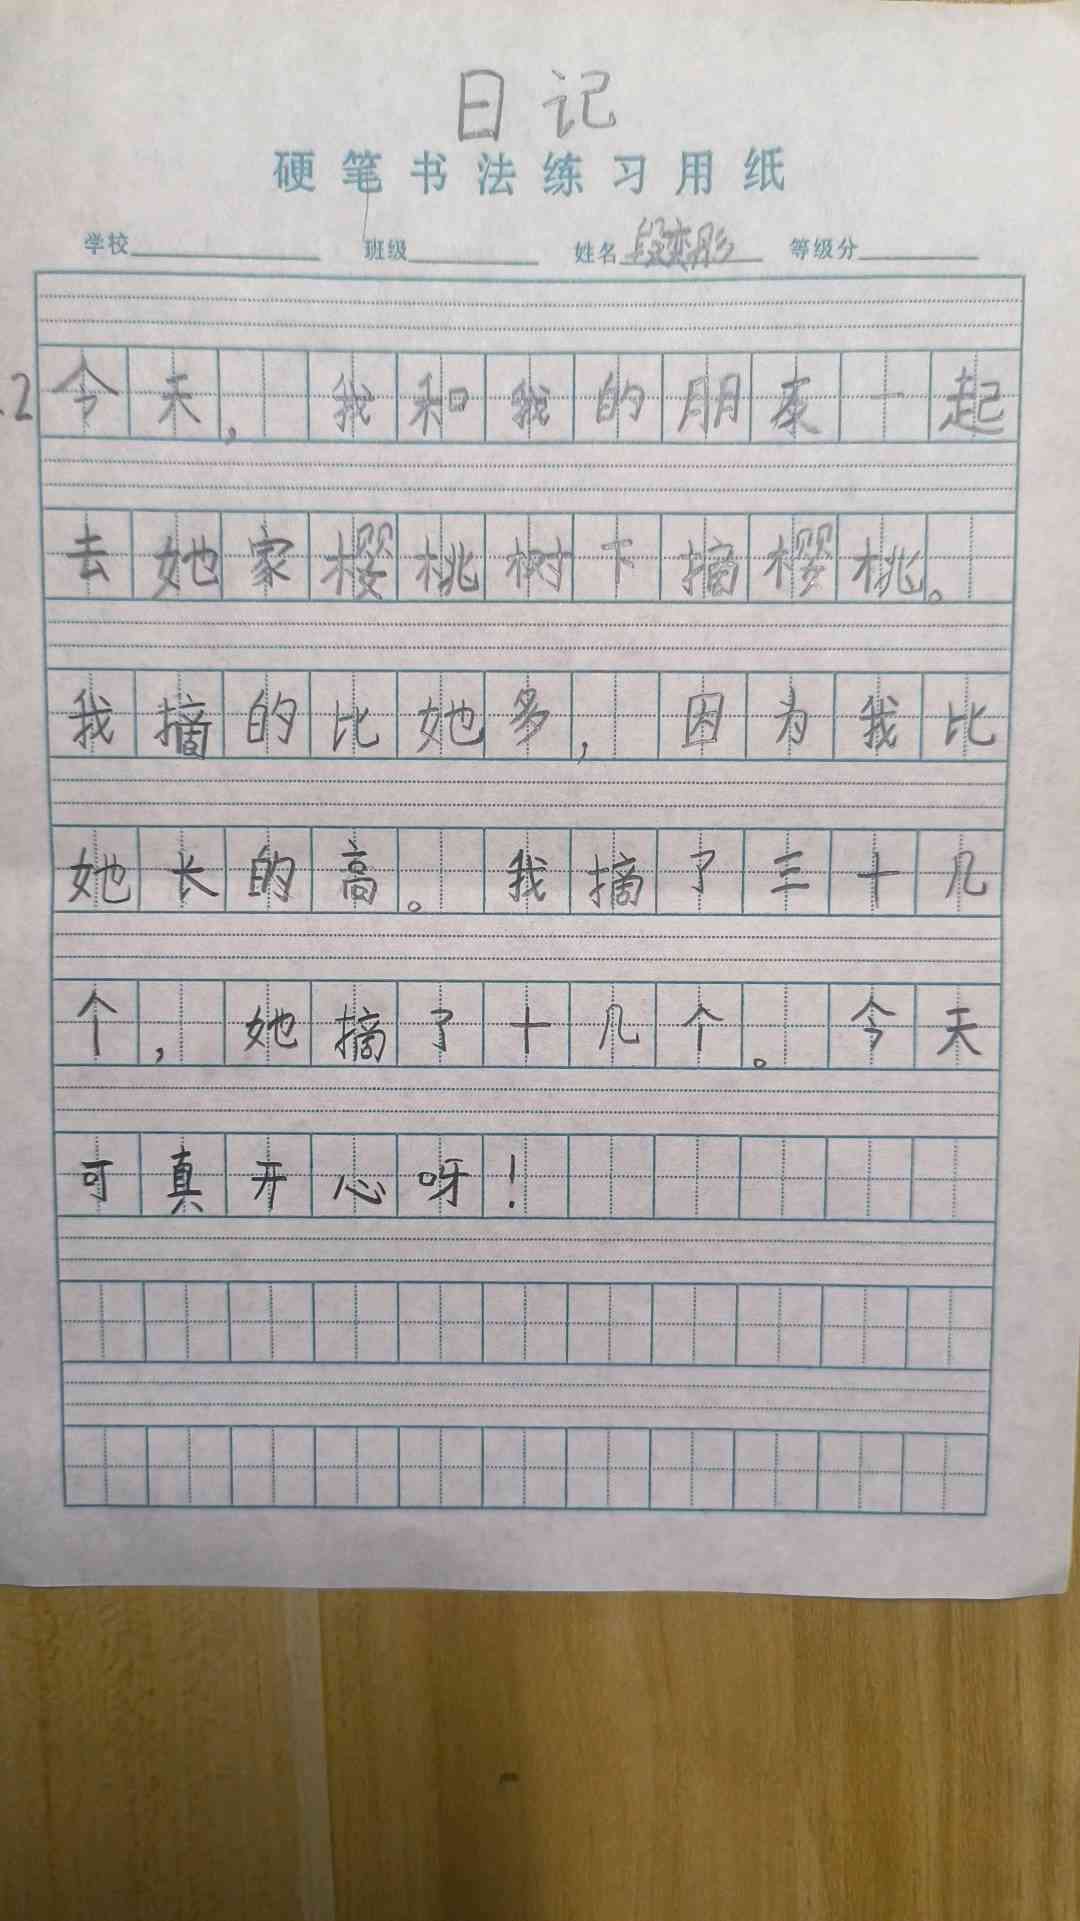 日记
硬笔书法练习用纸
学校 班级 姓名 段奕彤 等级分
.2 今天，我和我的朋友一起
去她家樱桃树下摘樱桃。
我摘的比她多，因为我比
她长的高。我摘了三十几
个，她摘了十几个。今天
可真开心呀！